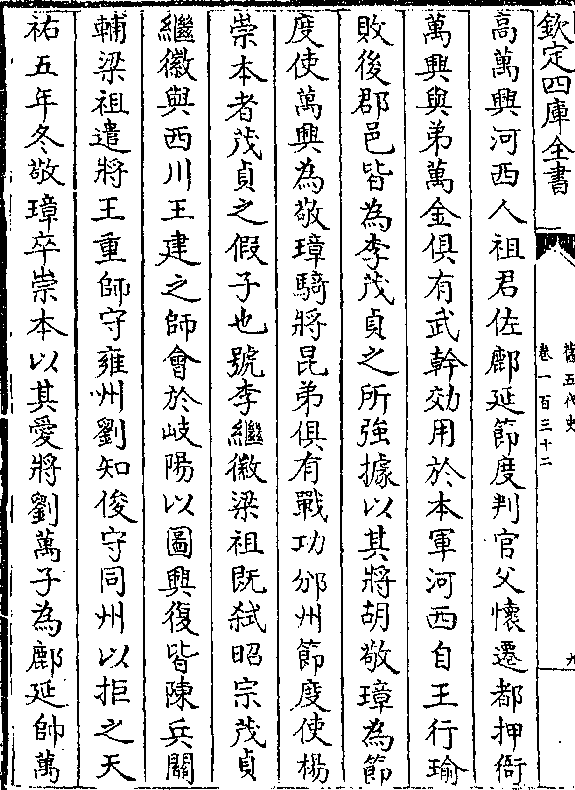 欽定四庫全書
舊五代史
卷一百三十二
九
高萬興河西人祖君佐鄜延節度判官父懷遷都押衙
萬興與弟萬金俱有武幹効用於本軍河西自王行瑜
敗後郡邑皆為李茂貞之所強據以其將胡敬璋為節
度使萬興為敬璋騎將昆弟俱有戰功邠州節度使楊
崇本者茂貞之假子也號李繼徽梁祖既弑昭宗茂貞
繼徽與西川王建之師會於岐陽以圖興復皆陳兵關
輔梁祖遣將王重師守雍州劉知俊守同州以拒之天
祐五年冬敬璋卒崇本以其愛將劉萬子為鄜延帥萬